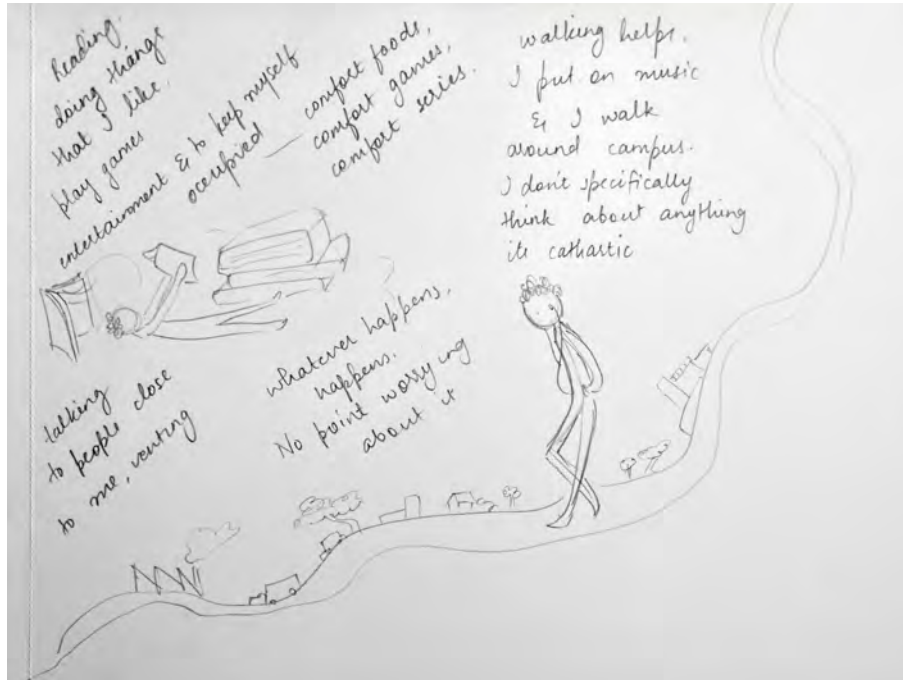 Reading.
doing things
that I like.
play games
entertainment & to keep myself
occupied — comfort foods,
comfort games,
comfort series.
walking helps.
I put on music
& I walk
around campus.
I don't specifically
think about anything
its cathartic
talking
to people close
to me, venting
whatever happens,
happens.
No point worrying
about it